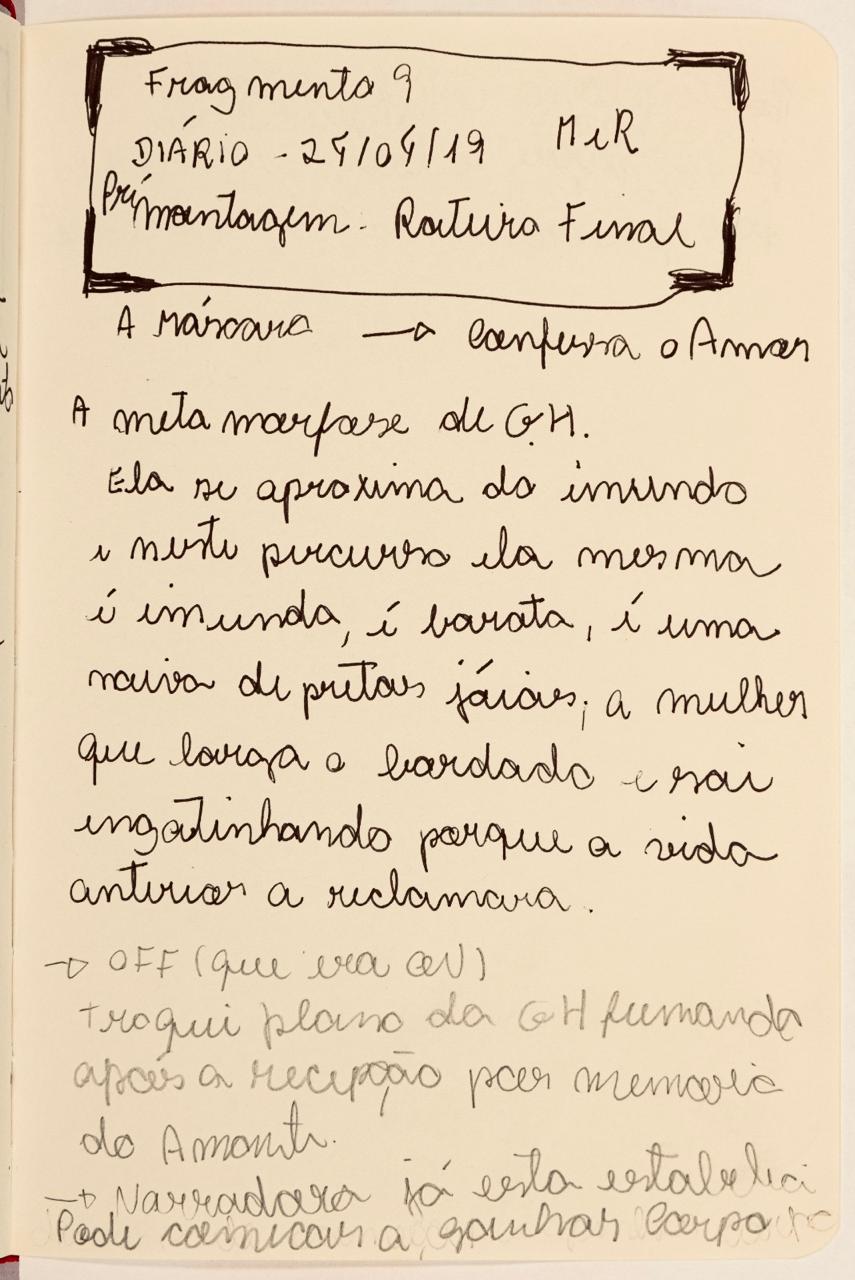 Fragmento 9
DIÁRIO - 24/04/19 M e R
Pré montagem - Roteiro Final
A Máscara → Confessa o Amor
A metamorfose de G.H.
Ela se aproxima do imundo
e neste percurso ela mesma
é imunda, é barata, é uma
noiva de pretas jóias, a mulher
que larga o bordado e sai
engatinhando porque a vida
anterior a reclamara.
→ OFF (que era
troquei plano da GH fumando
após a recepção por memoria
do Amante.
→ Narradora já esta
Pode começar a ganhar corpo